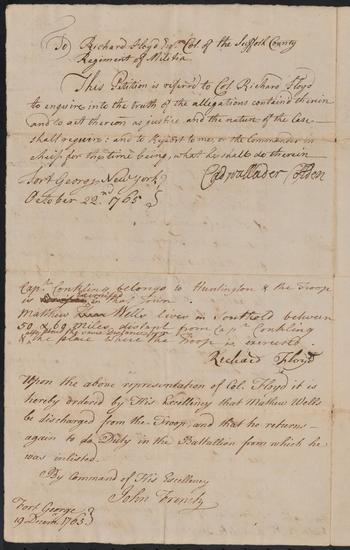 To Richard Floyd Esqr. Col. of the Suffolk County
Regiment of Militia.
This Petition is referr'd to Col. Richard Floyd
to enquire into the truth of the allegations containd therein
and to act thereon as justice and the nature of the Case
shall require: and to Report to me, or the Commander in
chief for the time being, what he shall do therein
Cadwallader Colden
Fort George New York
October 22nd. 1765
Capt. Conkling belongs to Huntington & the Troop
is exercised in that Town.
Mathew Wells lives in Southold between
50 & 60 Miles distant from Capt. Conkling
& the place where the Troop is exercised.
Richard Floyd
Upon the above representation of Col. Floyd it is
hereby ordered by His Excellency that Mathew Wells
be discharged from the Troop, and that he returns
again to do Duty in the Battallion from which he
was inlisted.
By Command of His Excellency
John French
Fort George
19 Decem. 1765